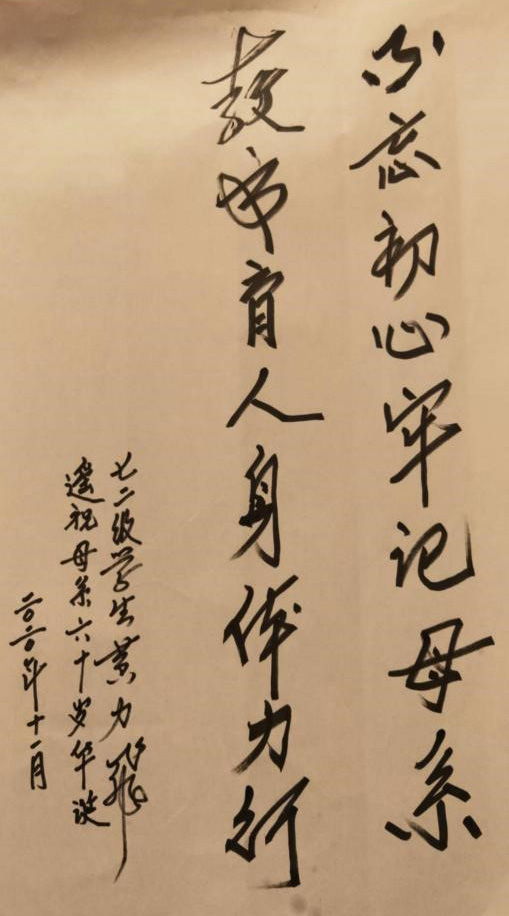 不忘初心牢记母系
教书育人身体力行
七二级学生黄力
遥祝母系六十岁华诞
二〇二〇年十一月